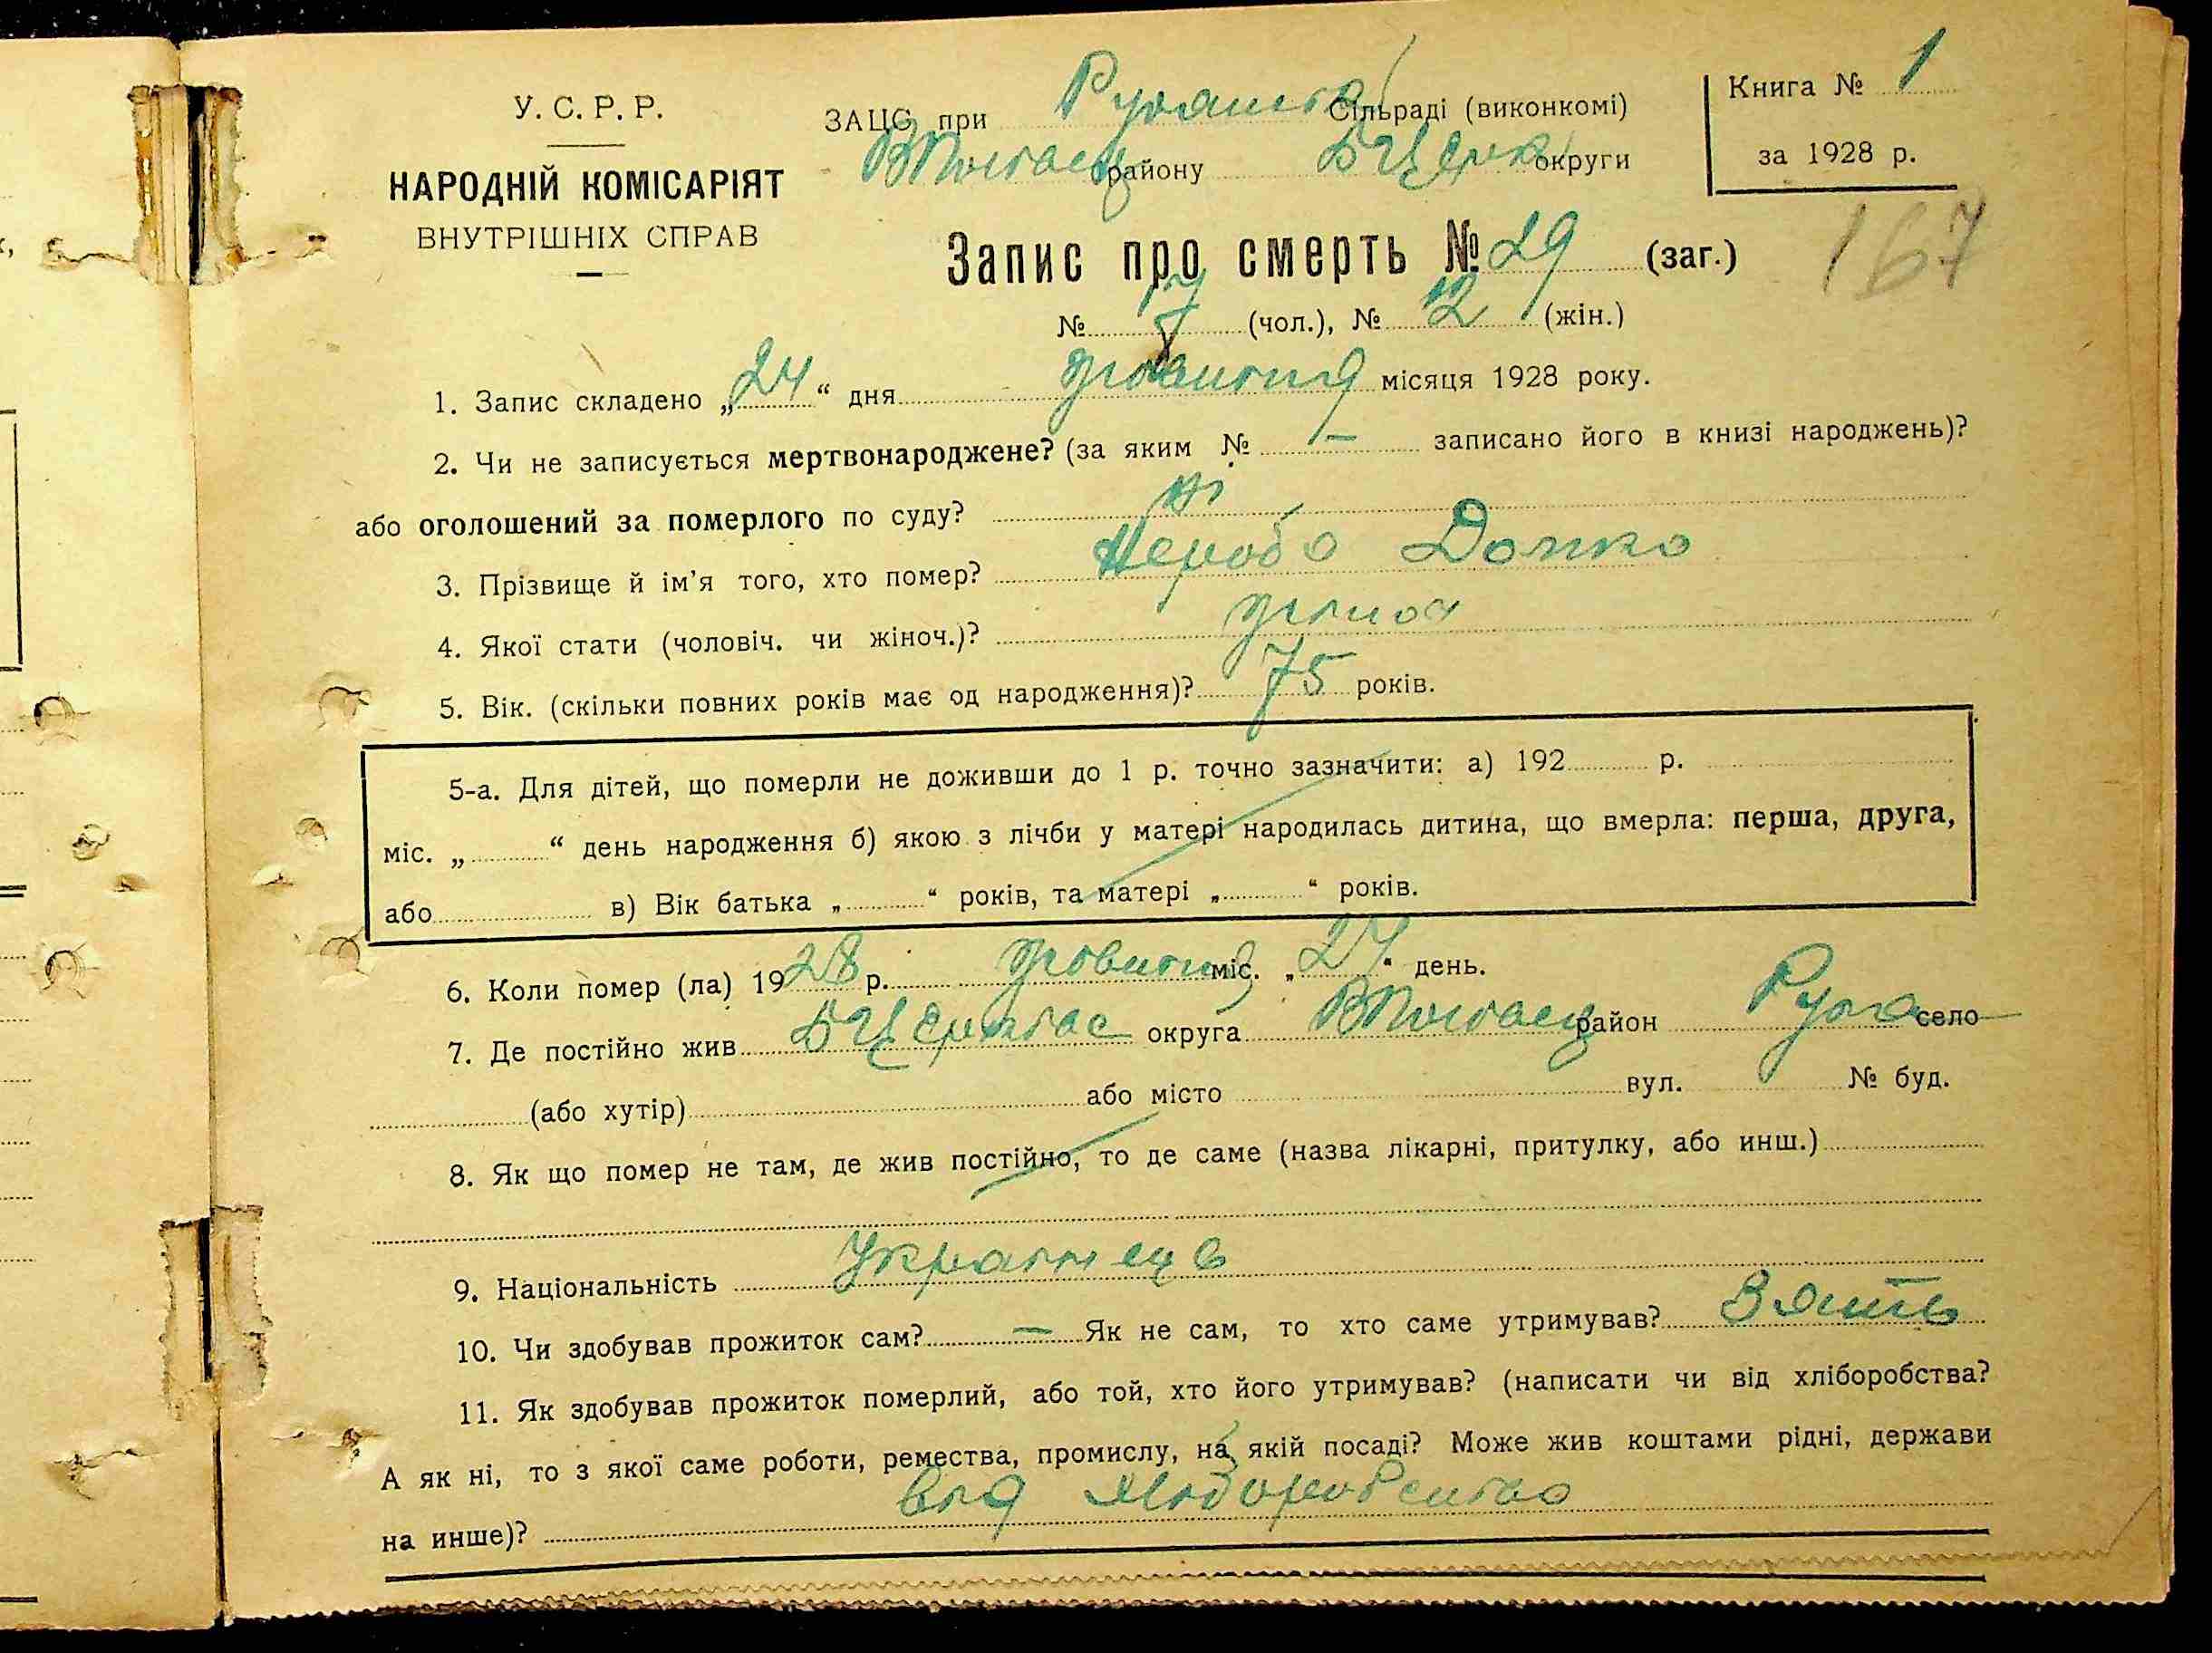 У. С. Р. Р.
НАРОДНІЙ КОМІСАРІЯТ
ВНУТРІШНІХ СПРАВ
ЗАЦС при Сільраді (виконкомі)
району БЦерк округи
Книга № 1
за 1928 р.
167
Запис про смерть № 29 (заг.)
№ 17 (чол.), № 12 (жін.)
1. Запис складено „24“ дня жовтня місяця 1928 року.
2. Чи не записується мертвонароджене? (за яким № — записано його в книзі народжень)?
або оголошений за померлого по суду? ні
3. Прізвище й ім'я того, хто помер?
4. Якої стати (чоловіч. чи жіноч.)? жіноч
5. Вік. (скільки повних років має од народження)? 75 років.
5-а. Для дітей, що померли не доживши до 1 р. точно зазначити: а) 192 р.
міс. „ “ день народження б) якою з лічби у матері народилась дитина, що вмерла: перша, друга,
або в) Вік батька „ “ років, та матері „ “ років.
6. Коли помер (ла) 1928 р. жовтня міс. „ “ день.
7. Де постійно жив округа район село
(або хутір) або місто вул. № буд.
8. Як що помер не там, де жив постійно, то де саме (назва лікарні, притулку, або инш.)
9. Національність
10. Чи здобував прожиток сам? — Як не сам, то хто саме утримував? Зять
11. Як здобував прожиток померлий, або той, хто його утримував? (написати чи від хліборобства?
А як ні, то з якої саме роботи, ремества, промислу, на якій посаді? Може жив коштами рідні, держави
на инше)? від хліборобства